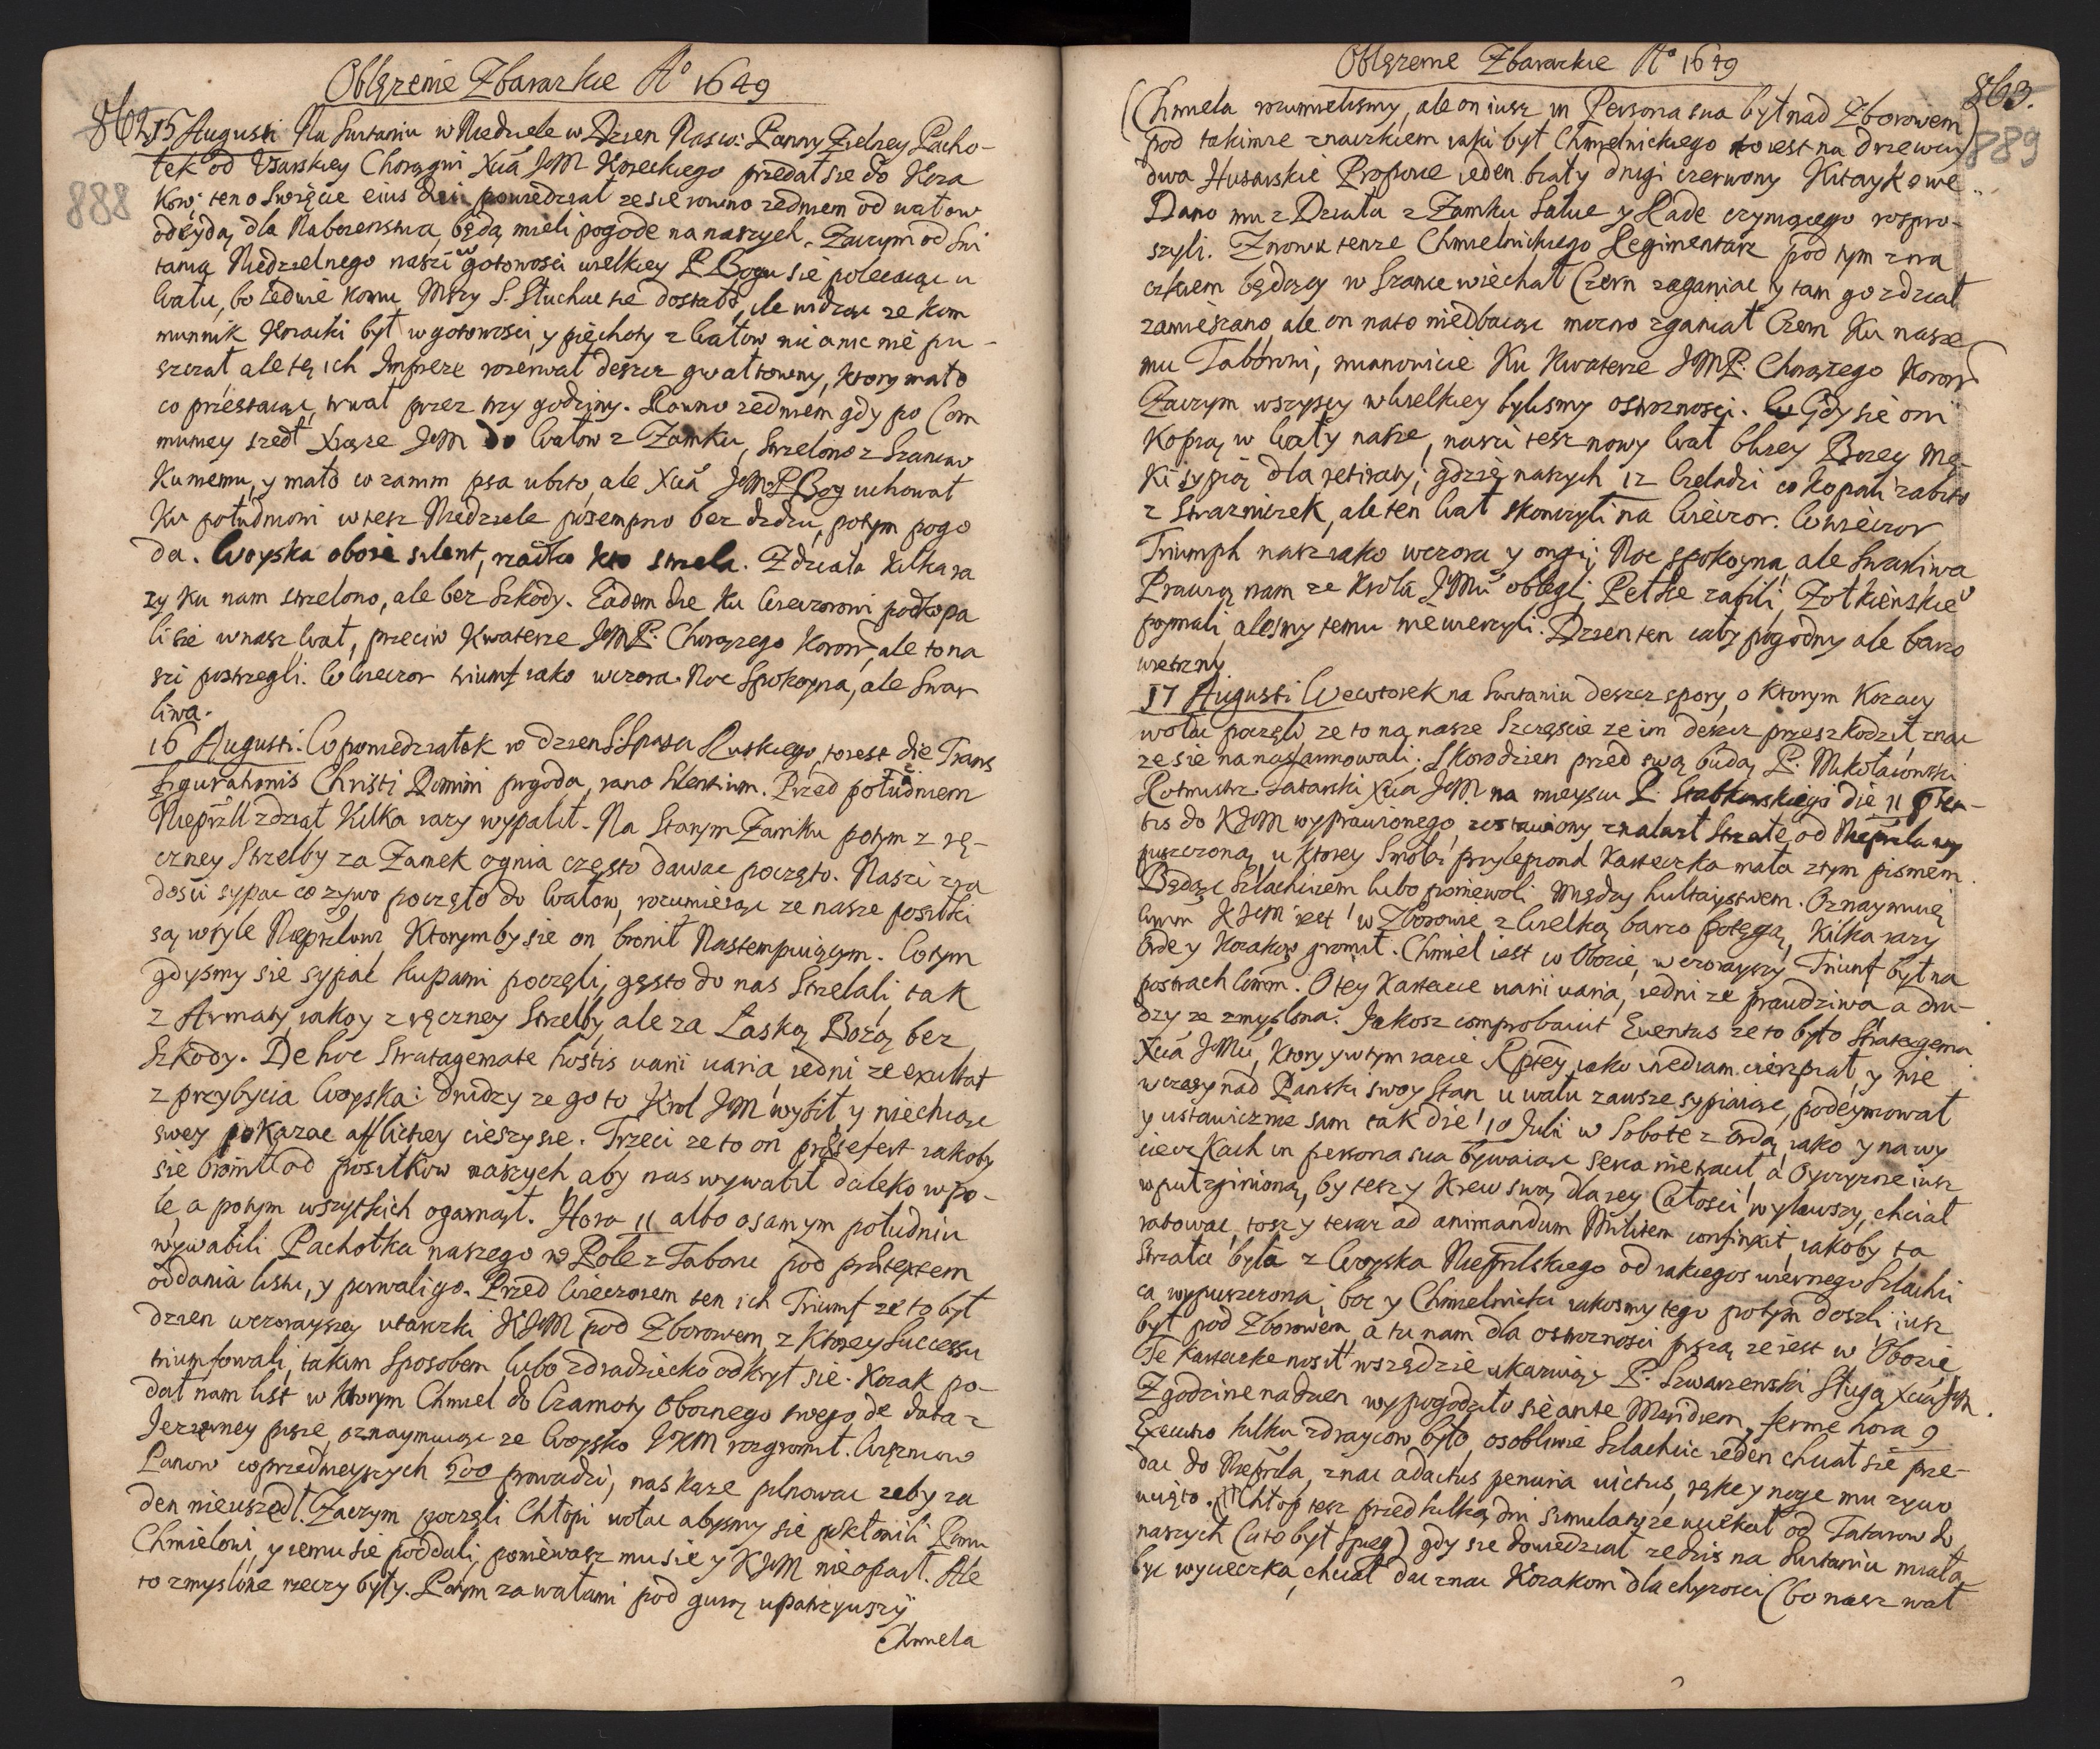 Oblęzenie Zbarazkie A° 1649
862
888
15 Augusti Na Switaniu w Niedziele w Dzien Nasw: Panny Zielney Pacho-
łek od Usarskiey Chorągwi Xcia JeM Koreckiego przedał sie do Koza
kow: ten o Swięcie eius diei powiedział ze sie rowno zedniem od wałow
odeydą dla Nabozenstwa, będą mieli pogode na naszych. Zaczym od Swi
tania Niedzielnego naszi w gotowosci wielkiey P Bogu sie polecaiąc u
Wału, bo ledwie komu Mszy S. Słuchac sie dostało, ile widząc ze kom
munnik Kozacki był w gotowosci, y piechoty z Wałow nic a nic nie pu-
szczał ale tę ich Impreze rozerwał deszcz gwałtowny, ktory mało
co przestaiąc, trwał przez trzy godziny. Rowno zedniem gdy po Com
muniey szedł Xiąze JeM do Wałow z Zamku, Strzelono z Szancow
Ku niemu, y mało co zanim psa ubito, ale Xcia JeM P Bog uchował
Ku południowi w tesz Niedziele posempno bez dzdzu, potym pogo
da. Woyska oboie silent, rzadko kto strzela. Z działa kilka ra
zy Ku nam strzelono, ale bez Szkody. Eadem die Ku Wieczorowi podkopa
li sie w nasz Wał, przeciw Kwaterze JeMP. Chorązego Koron, ale to na
szi postrzegli. W Wieczor triumf iako wczora. Noc Spokoyna, ale Swar
liwa.
16 Augusti. W poniedziałek w dzien S. Spasa Ruskiego, to iest die Trans
figurationis Christi Domini pogoda, rano Silentium. Przed południem
Nieprzll z dział Kilka razy wypalił. Na Starym Zamku potym z rę-
czney Strzelby za Zamek ognia często dawac poczęto. Naszi z ra
dosci sypac co zywo poczęło do Wałow, rozumieiąc ze nasze posiłki
są w tyle Nieprzlowi Ktorym by sie on bronił Nastempuiącym. Potym
gdysmy sie sypac kupami poczęli, gęsto do nas Strzelali, tak
z Armaty, iako y z ręczney Strzelby, ale za Łaską Bozą bez
Szkody. De hoc Stratagemate hostis varii varia, iedni ze exultat
z przybycia Woyska: drudzy ze go to Krol JeM wybił, y niechcąc
swey pokazac afflictiey cieszy sie. Trzeci ze to on prae se fert iakoby
sie bronił od posiłkow naszych aby nas wywabił daleko w po-
le, a potym wszytkich ogarnął. Hora 11 albo o samym południu
wywabili Pachołka naszego w Pole z Taboru pod praetextem
oddania listu, y porwali go. Przed Wieczorem ten ich Triumf ze to był
dzien wczorayszey utarczki KJeM pod Zborowem, z Ktorey Successu
triumfowali, takim Sposobem lubo zdradziecko odkrył sie. Kozak po-
dał nam list w ktorym Chmiel do Czarnoty Oboznego swego de data z
Jezierney pisze, oznaymuiąc ze Woysko JKM rozgromił. Więzniow
Panow coprzednieyszych 500 prowadzi, nas kaze pilnowac zeby za
den nieuszedł. Zaczym poczęli Chłopi wołac abysmy sie pokłonili Panu
Chmielowi, y iemu sie poddali, poniewasz mu sie y KJeM nieoparł. Ale
to zmyslone rzeczy były. Potym za wałami pod gurą upatrzywszy
Chmiela
Oblęzenie Zbarazkie A° 1649
863.
889
(Chmiela rozumielismy, ale on iusz in Persona sua był nad Zborowem)
pod takimze znaczkiem iaki był Chmielnickiego to iest na drzewcu
dwa Husarskie Proporce ieden biały drugi czerwony Kitaykowe.
Dano mu z Działa z Zamku Salue y Rade czyniącego rospro-
szyli. Znowu tenze Chmielnickiego Regimentarz pod tym zna
czkiem będący w Szance wiechał Czern zaganiac y tam go zdział
zamieszano, ale on nato niedbaiąc mocno zganiał Czern Ku nasze
mu Taborowi, mianowicie Ku Kwaterze JeMP. Chorązego Koron
Zaczym wszyscy w Wielkiey bylismy ostroznosci. Gdy sie oni
Kopią w Wały nasze, naszi tesz nowy Wał blizey Bozey Mę-
Ki sypią dla retiraty, gdzie naszych 12 Czeladzi co kopali zabito
z Strazniczek, ale ten Wał skonczyli na Wieczor. W Wieczor
Triumph nasz iako wczora y ongi; Noc spokoyna, ale Swarliwa
Prawią nam ze Krola JeMci oblegli, Petke zabili, Zołkiewskiego
poymali, alesmy temu niewierzyli. Dzien ten cały pogodny ale barzo
wietrzny
17 Augusti Wewtorek na Switaniu deszcz spory, o Ktorym Kozacy
wołac poczęli ze to na nasze Szczęscie ze im deszcz przeszkodził, znac
ze sie na nas armowali. Skoro dzien przed swą budą P. Mikołaiowski
Rotmistrz Tatarski Xcia JeM na mieyscu P. Stabkowskiego die 11
do KJeM wyprawionego, zostawiony znalazł Strzałe od Nieprzla wy
puszczoną, u Ktorey Smołą przylepiona Karteczka mała z tym pismem.
Będąc Szlachcicem lubo poniewoli między hultaystwem. Oznaymuię
KJeM iest w Zborowie z Wielką barzo potęgą, Kilka razy
Orde y Kozakow gromił. Chmiel iest w Obozie, wczorayszy Triumf był na
postrach. O tey Kartecze varii varia, iedni ze prawdziwa a dru-
dzy ze zmyslona. Jakosz comprobavit Eventus ze to było Stratagema
Xcia JeMci, Ktory y w tym razie Rptey iako niedzam cierpiał, y nie
wczasy nad Panski swoy Stan u wału zawsze sypiaiąc, podeymował
y ustawicznie sam tak die 10 Julii w Sobote z Ordą iako y na wy
cieczkach in persona sua bywaiąc serca nietracił, a Oyczyzne iusz
wpuł zginioną, by tesz y Krew swą dla iey Całosci wylawszy, chciał
ratowac, tosz y teraz ad animandum Militem confinxit iakoby ta
Strzała była z Woyska Nieprzlskiego od iakiegos wiernego Szlachci
ca wypuszczona, boc y Chmielnicki iakosmy tego potym doszli iusz
był pod Zborowem, a tu nam dla ostroznosci piszą ze iest w Obozie
Te Karteczke nosił wszędzie ukazuiąc P. Szwarzenski Sługa Xcia JeM.
Z godzine na dzien wypogodziło sie ante Meridiem, ferme hora 9
Executio kilku zdraycow było, osobliwie Szlachcic ieden chciał sie prze-
dac do Nieprzla, znac adactus penuria victus, rękę y nogę mu zywo
ucięto. Chłop tesz przed kilką dni simulatyze uciekał od Tatarow do
naszych (a to był Spieg) gdy sie dowiedział ze dzis na Switaniu miała
byc wycieczka, chciał dac znac Kozakom dla chytrosci (bo nasz wał